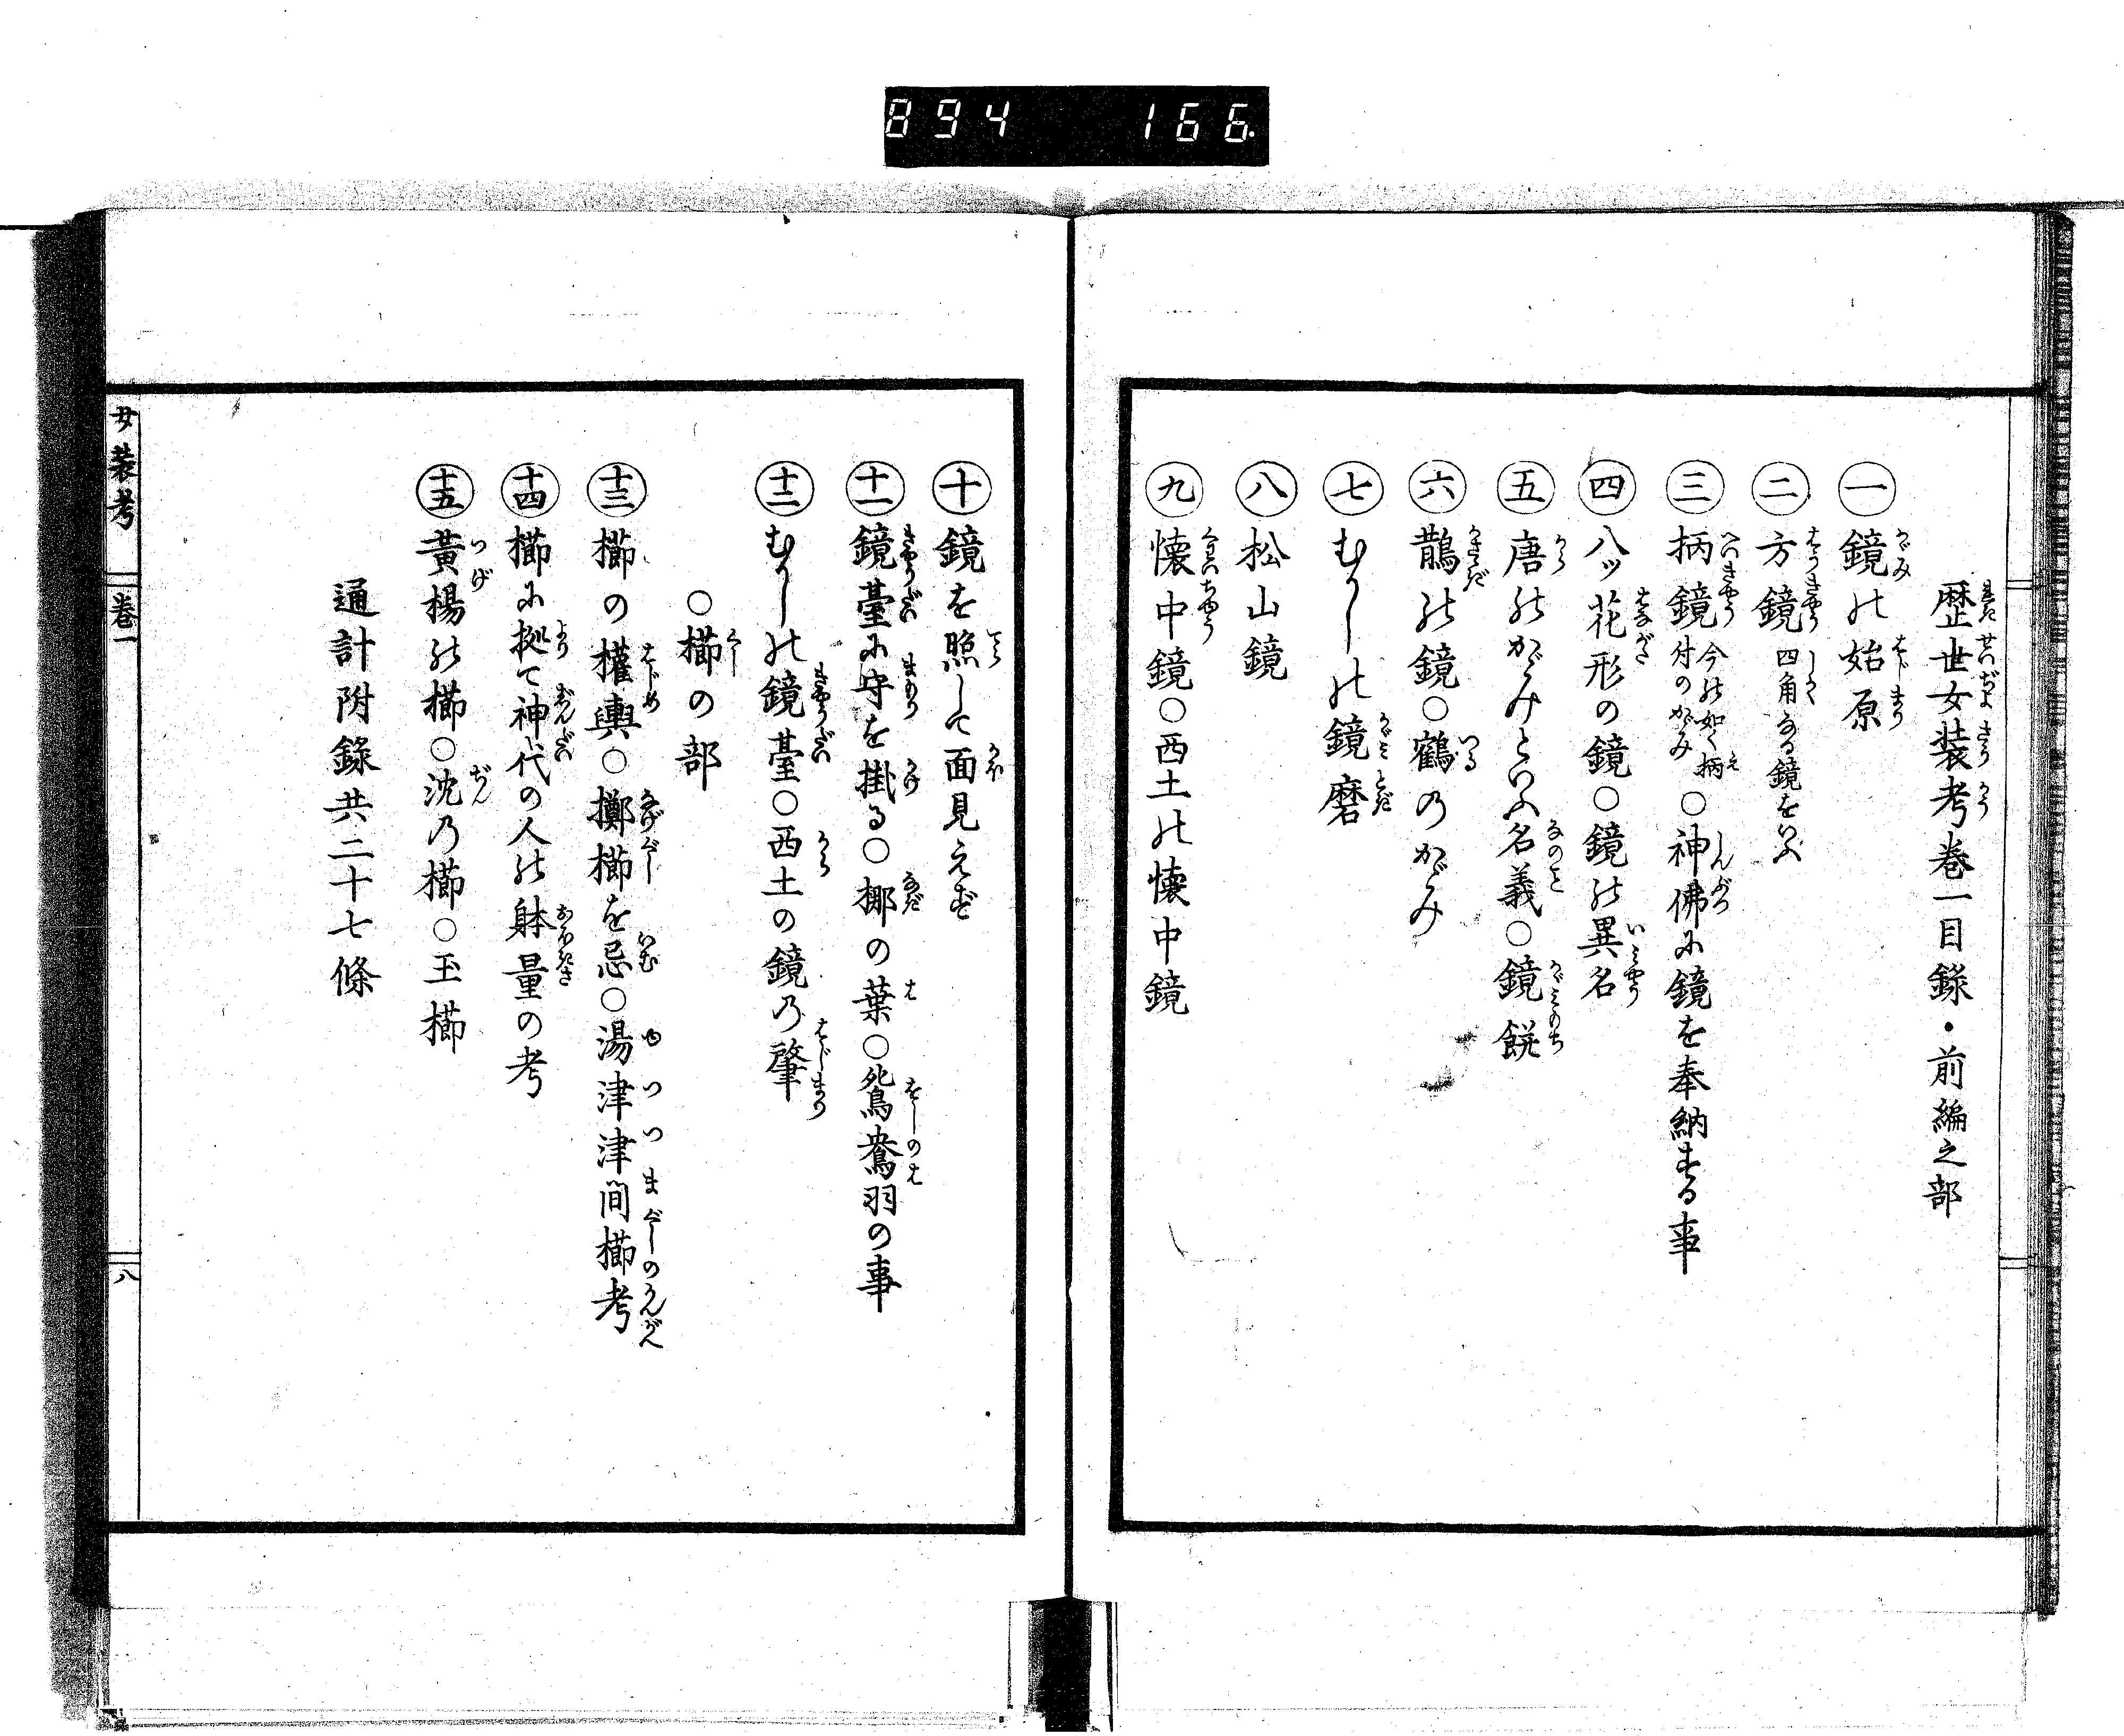 894 166
歴世女装考巻一目録・前編之部
㊀鏡の始原
㊁方鏡 四角なる鏡をいふ
㊂柄鏡 今の如く柄付のかゞみ ○神佛に鏡を奉納する事
㊃八ッ花形の鏡○鏡の異名
㊄唐のかゞみといふ名義○鏡餅
㊅鵲の鏡○鶴のかゞみ
㊆むかしの鏡磨
㊇松山鏡
㊈懐中鏡○西土の懐中鏡
㊉鏡を照して面見えず
十一 鏡臺に守を掛る○梛の葉○鴛鴦羽の事
十二 むかしの鏡臺○西土の鏡の肇
○櫛の部
十三 櫛の権輿○擲櫛を忌○湯津津間櫛考
十四 櫛に拠て神代の人の躰量の考
十五 黄楊の櫛○沈の櫛○玉櫛
通計附録共二十七條
女装考 巻一 八